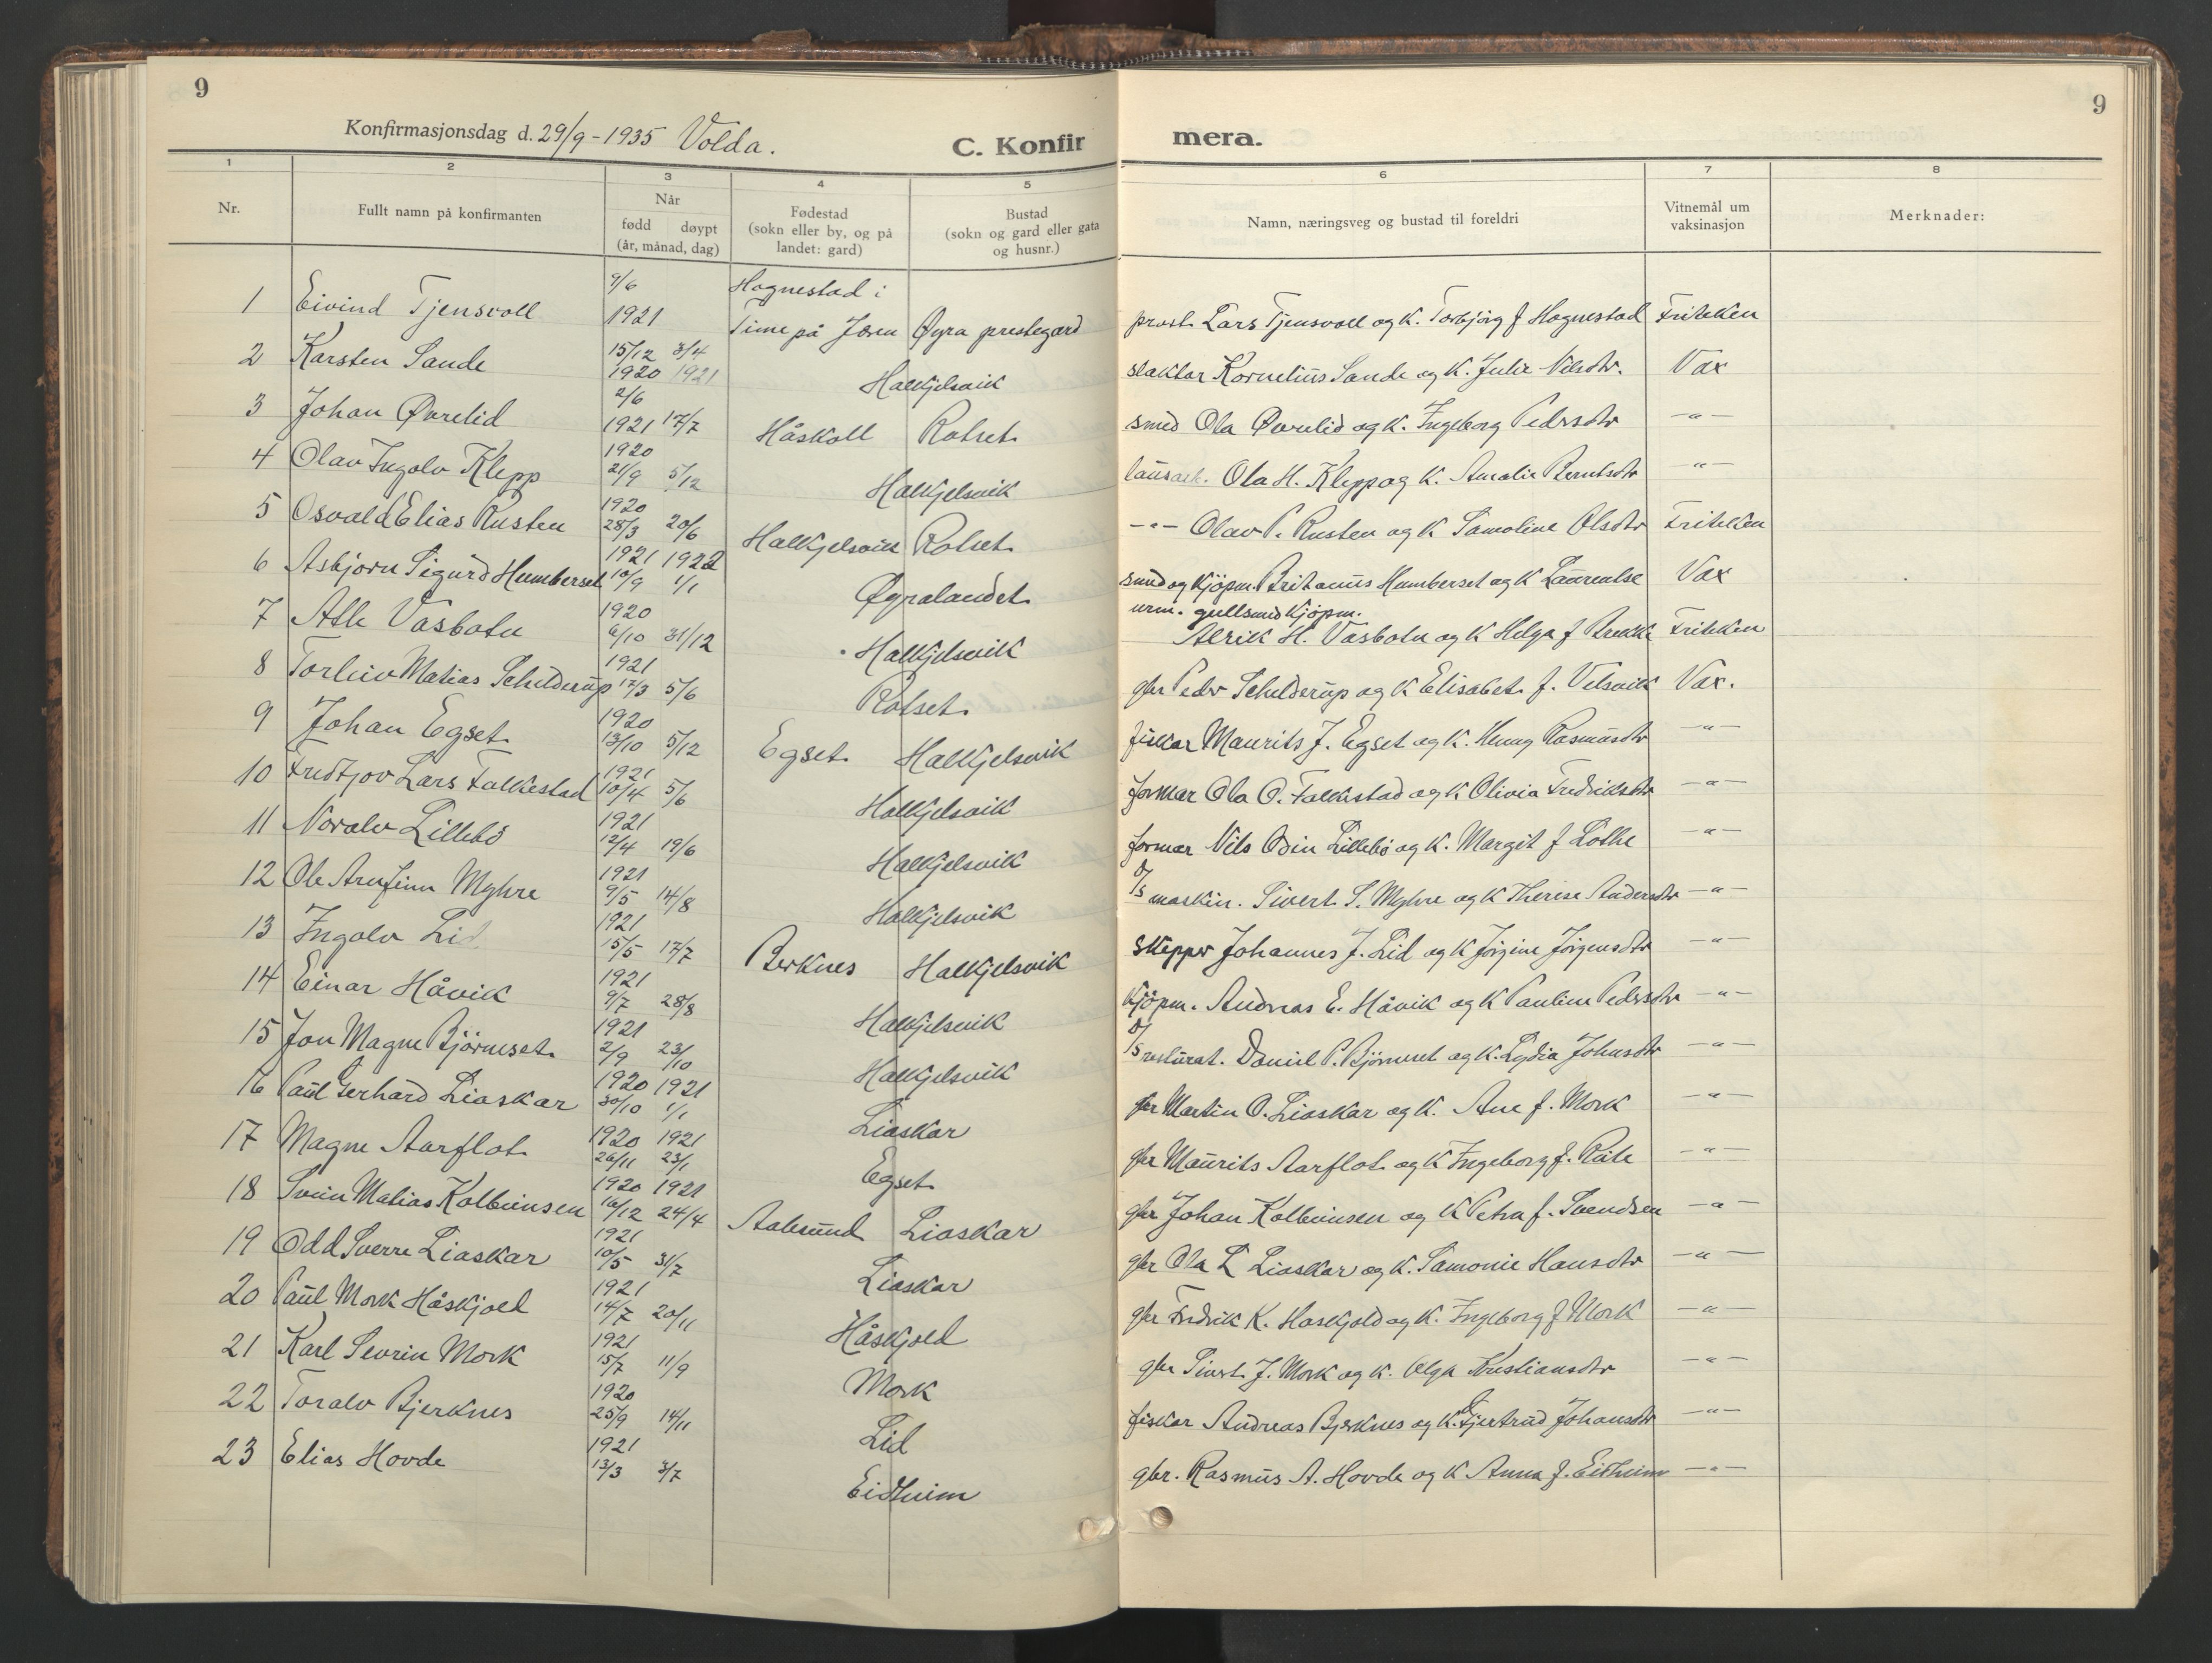 9
Konfirmasjonsdag d. 29/9-1935 Volda.
C. Konfir
mera.
9
1 2 3 4 5 6 7 8
Nr.
Fullt namn på konfirmanten
Når
fødd døypt
(år, månad, dag)
Fødestad
(sokn eller by, og på
landet: gard)
Bustad
(sokn og gard eller gata
og husnr.)
Namn, næringsveg og bustad til foreldri
Vitnemål um
vaksinasjon
Merknader:
1 Eivind Tjensvoll 9/6 1921 Hognestad i Time på Jæren Øyra prestegard prost Lars Tjensvoll og K. Torbjörg f Hognestad Friteken
2 Karsten Sande 15/12 1920 3/4 1921 Halkjelsvik slaktar Kornelius Sande og K. Julie Nilsdtr. Vax
3 Johan Øvrelid 2/6 1921 17/7 Håskoll Rotset smed Ola Øvrelid og K. Ingeborg Pedersdtr -"-
4 Olav Ingolv Klepp 1920 21/9 5/12 Halkjelsvik lausarb. Ola H. Klepp og K. Amalie Berntsdtr -"-
5 Osvald Elias Rusten 1920 28/3 20/6 Halkjelsvik Rotset -"- Olav P. Rusten og K Samoline Olsdtr Friteken
6 Asbjørn Sigurd Humberset 1921 1922 10/9 1/1 Øyralandet smed og Kjöpm. Britanus Humberset og K Laurentse Vax
7 Atle Vasbotn 1920 6/10 31/12 Halkjelsvik urm. gullsmed Kjöpm. Alrik H. Vasbotn og K Helga f Brekke Friteken
8 Torleiv Matias Schilderup 1921 17/3 5/6 Rotset gbr Peder Schilderup og K Elisabet f. Velsvik Vax.
9 Johan Egset 1920 13/10 5/12 Egset Halkjelsvik fiskar Maurits J. Egset og K. Henny Rasmusdtr -"-
10 Fredtjov Lars Folkestad 1921 10/4 5/6 Halkjelsvik formar Ola O. Folkestad og K Olivia Fredriksdtr -"-
11 Noralv Lillebö 1921 12/4 19/6 Halkjelsvik formar Nils Odin Lillebö og K. Margit f Lothe -"-
12 Ole Arnfinn Myhre 1921 9/5 14/8 Halkjelsvik D/S maskin. Sivert S. Myhre og K Therese Andersdtr -"-
13 Ingolv Lid 1921 15/5 17/7 Berknes Halkjelsvik skipper Johannes J. Lid og K Jörgine Jörgensdtr -"-
14 Einar Håvik 1921 9/7 28/8 Halkjelsvik Kjöpm. Andreas E. Håvik og K Pauline Pedersdtr -"-
15 Jon Magne Bjørneset 1921 2/9 23/10 Halkjelsvik D/S resturat. Daniel P. Bjørneset og K. Lydia Johnsdtr -"-
16 Paul Gerhard Liaskar 1920 1921 30/10 1/1 Liaskar gbr Martin O. Liaskar og K. Ane f. Mork -"-
17 Magne Aarflot 1920 1921 26/11 23/1 Egset gbr Maurits Aarflot og K Ingeborg f. Råte -"-
18 Svein Matias Kolbeinsen 1920 1921 16/12 24/4 Aalesund Liaskar gbr Johan Kolbeinsen og K Petra f. Svendsen -"-
19 Odd Sverre Liaskar 1921 10/5 31/7 Liaskar gbr Ola L Liaskar og K. Samonie Hansdtr -"-
20 Paul Mork Håskjold 1921 14/7 20/11 Håskjold gbr Fredrik K. Haskjold og K. Ingeborg f Mork -"-
21 Karl Sevrin Mork 1921 15/7 11/9 Mork gbr Sivert J. Mork og K. Olga Kristiansdtr -"-
22 Toralv Bjerknes 1920 25/9 14/11 Lid fiskar Andreas Bjerknes og K. Gjertrud Johansdtr -"-
23 Elias Hovde 1921 13/3 3/7 Eidheim gbr. Rasmus A. Hovde og K Anna f. Eidheim -"-